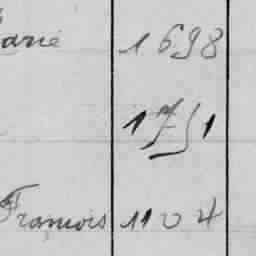 arie 1698
1751
Francois 1104